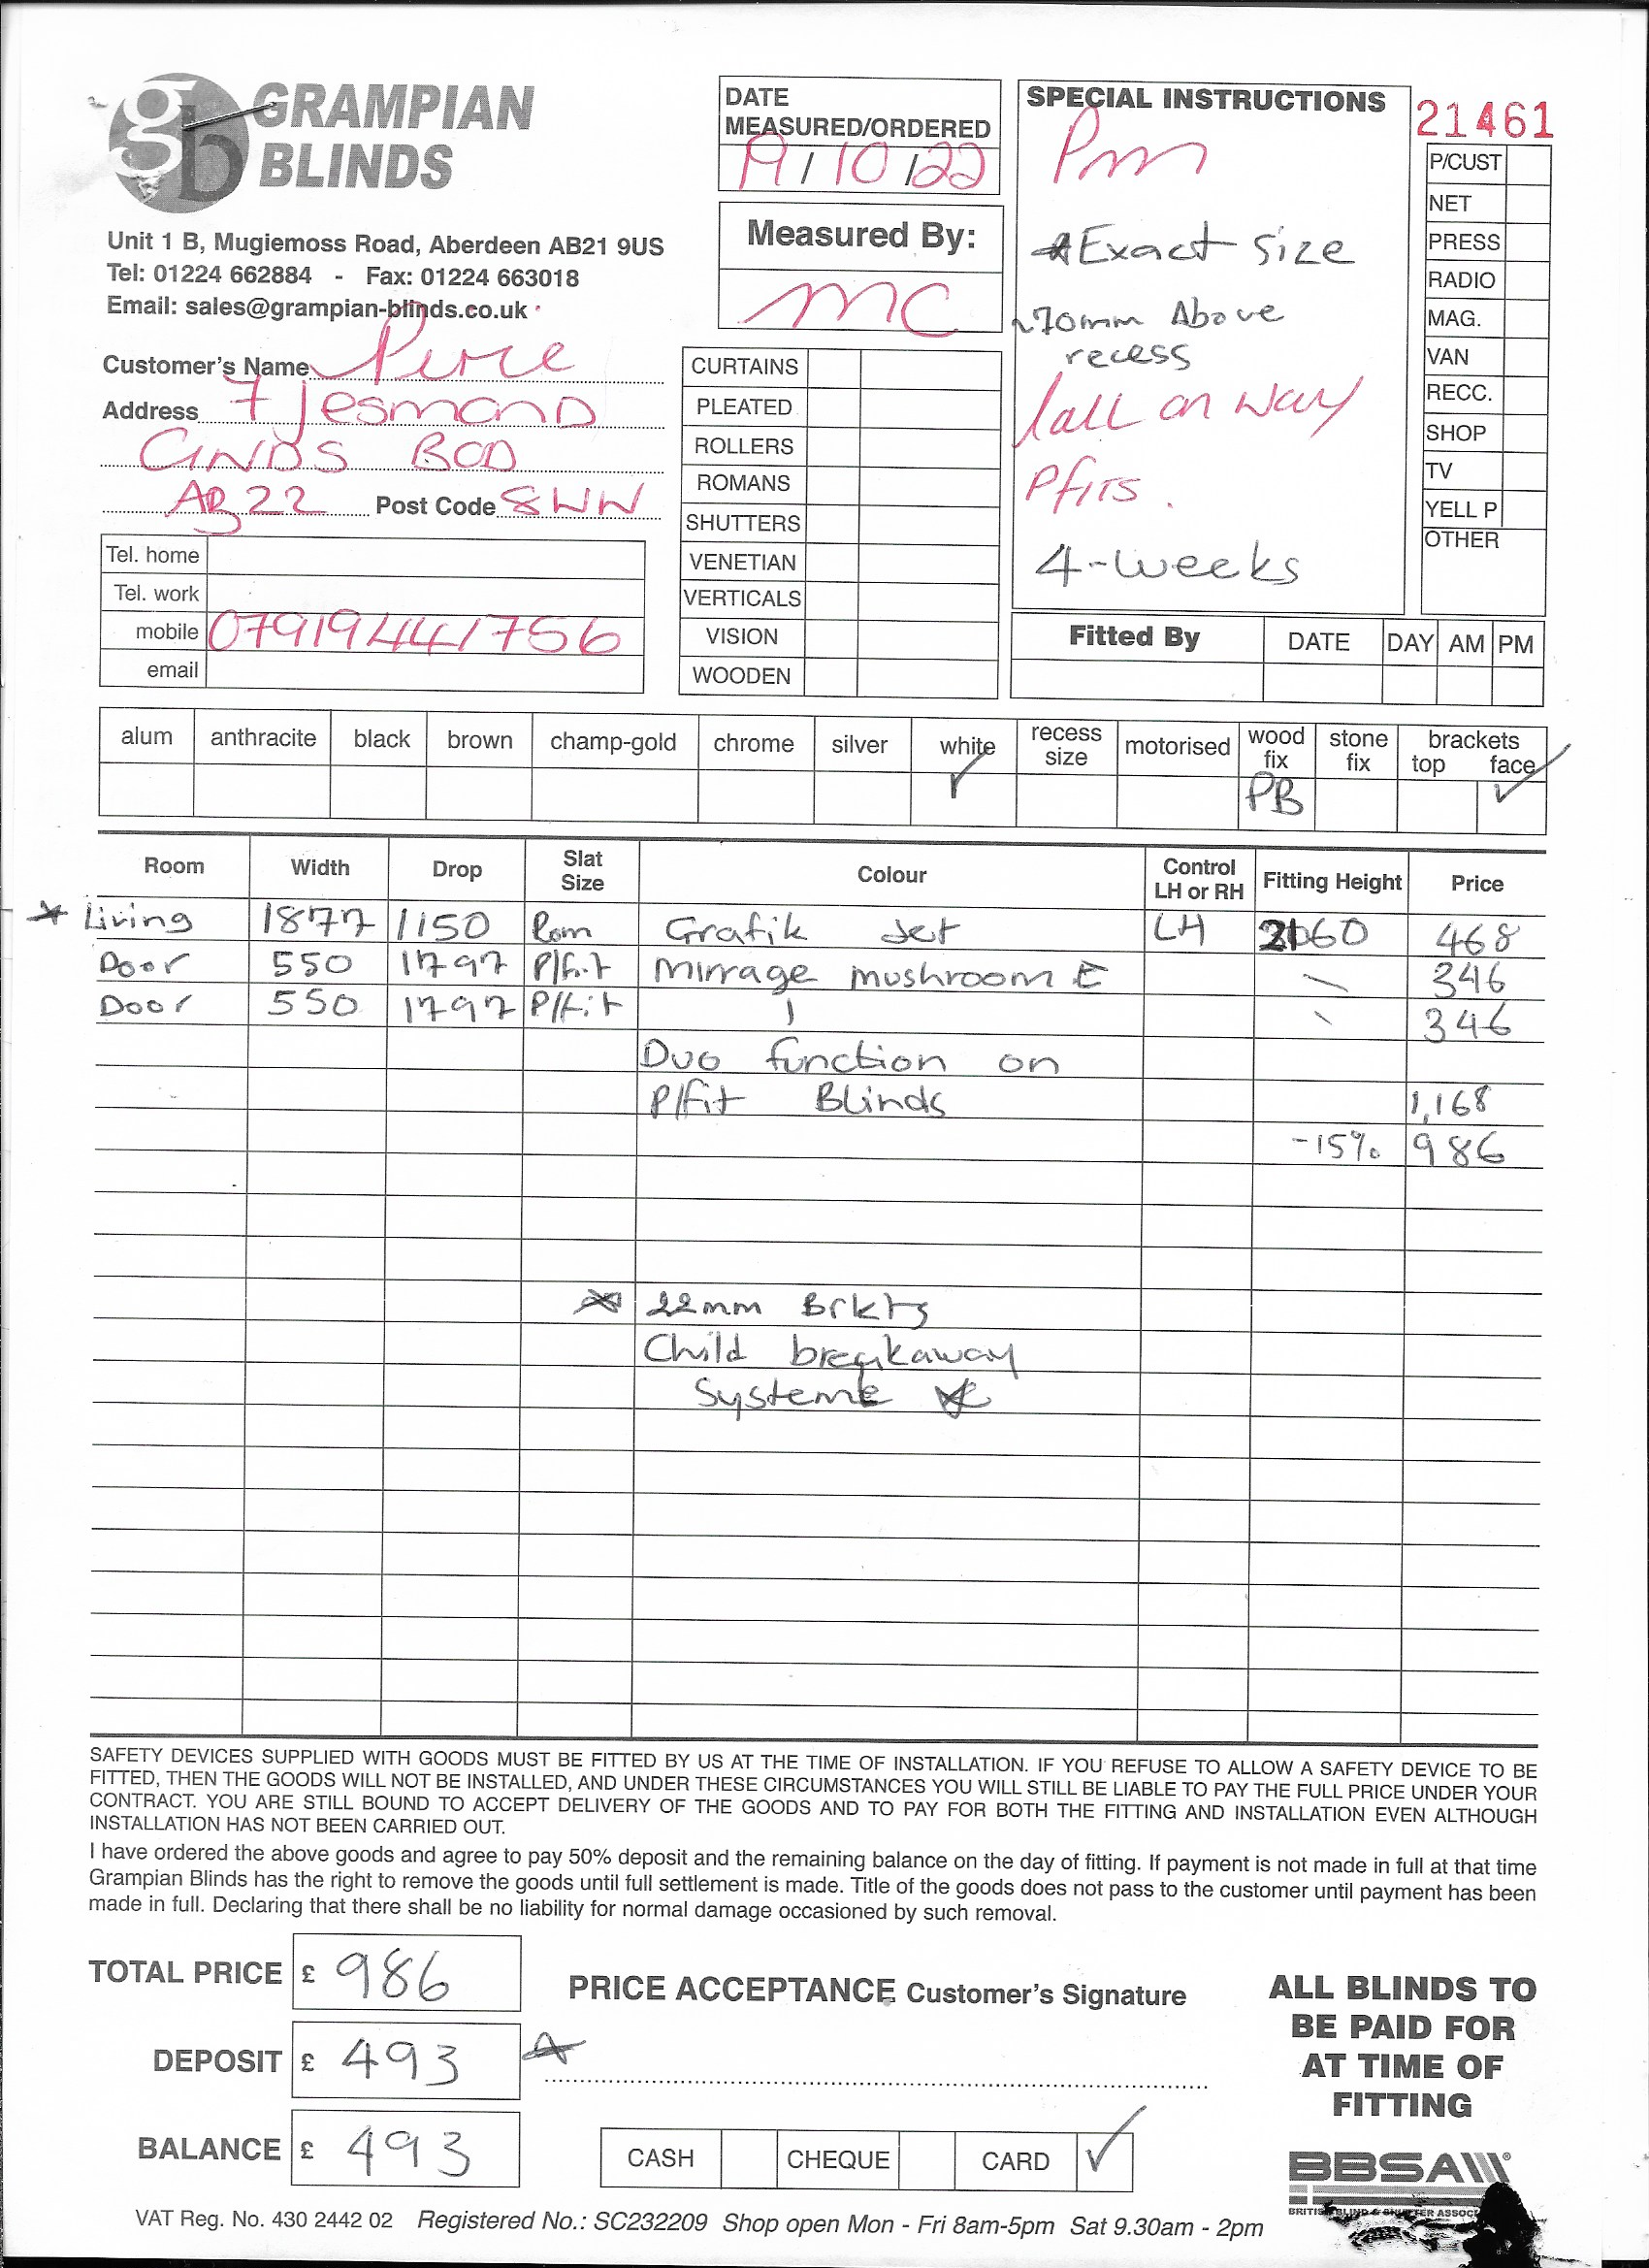 GRAMPIAN
BLINDS
Unit 1 B, Mugiemoss Road, Aberdeen AB21 9US
Tel: 01224 662884 - Fax: 01224 663018
Email: sales@grampian-blinds.co.uk
DATE
MEASURED/ORDERED
19/10/22
Measured By:
MC
SPECIAL INSTRUCTIONS
Pm
*Exact Size
~70mm Above
recess
Call on way
Pfits.
4-weeks
21461
P/CUST
NET
PRESS
RADIO
MAG.
VAN
RECC.
SHOP
TV
YELL P
OTHER
Customer's Name Pirie
Address 7 Jesmond
GNDS BOD
AB22 Post Code 8WW
Tel. home
Tel. work
mobile 07919441756
email
CURTAINS
PLEATED
ROLLERS
ROMANS
SHUTTERS
VENETIAN
VERTICALS
VISION
WOODEN
Fitted By DATE DAY AM PM
alum anthracite black brown champ-gold chrome silver white recess size motorised wood fix stone fix brackets top face
✓ PB ✓
Room Width Drop Slat Size Colour Control LH or RH Fitting Height Price
* Living 1877 1150 Rom Grafik Jet LH 2160 468
Door 550 1797 P/fit Mirrage mushroom E \ 346
Door 550 1797 P/fit \ 346
Duo function on
P/fit Blinds 1,168
-15% 986
* 22mm Brkts
Child breakaway
System *
SAFETY DEVICES SUPPLIED WITH GOODS MUST BE FITTED BY US AT THE TIME OF INSTALLATION. IF YOU REFUSE TO ALLOW A SAFETY DEVICE TO BE
FITTED, THEN THE GOODS WILL NOT BE INSTALLED, AND UNDER THESE CIRCUMSTANCES YOU WILL STILL BE LIABLE TO PAY THE FULL PRICE UNDER YOUR
CONTRACT. YOU ARE STILL BOUND TO ACCEPT DELIVERY OF THE GOODS AND TO PAY FOR BOTH THE FITTING AND INSTALLATION EVEN ALTHOUGH
INSTALLATION HAS NOT BEEN CARRIED OUT.
I have ordered the above goods and agree to pay 50% deposit and the remaining balance on the day of fitting. If payment is not made in full at that time
Grampian Blinds has the right to remove the goods until full settlement is made. Title of the goods does not pass to the customer until payment has been
made in full. Declaring that there shall be no liability for normal damage occasioned by such removal.
TOTAL PRICE £ 986
DEPOSIT £ 493 *
BALANCE £ 493
PRICE ACCEPTANCE Customer's Signature
CASH CHEQUE CARD ✓
ALL BLINDS TO
BE PAID FOR
AT TIME OF
FITTING
BBSA
VAT Reg. No. 430 2442 02 Registered No.: SC232209 Shop open Mon - Fri 8am-5pm Sat 9.30am - 2pm